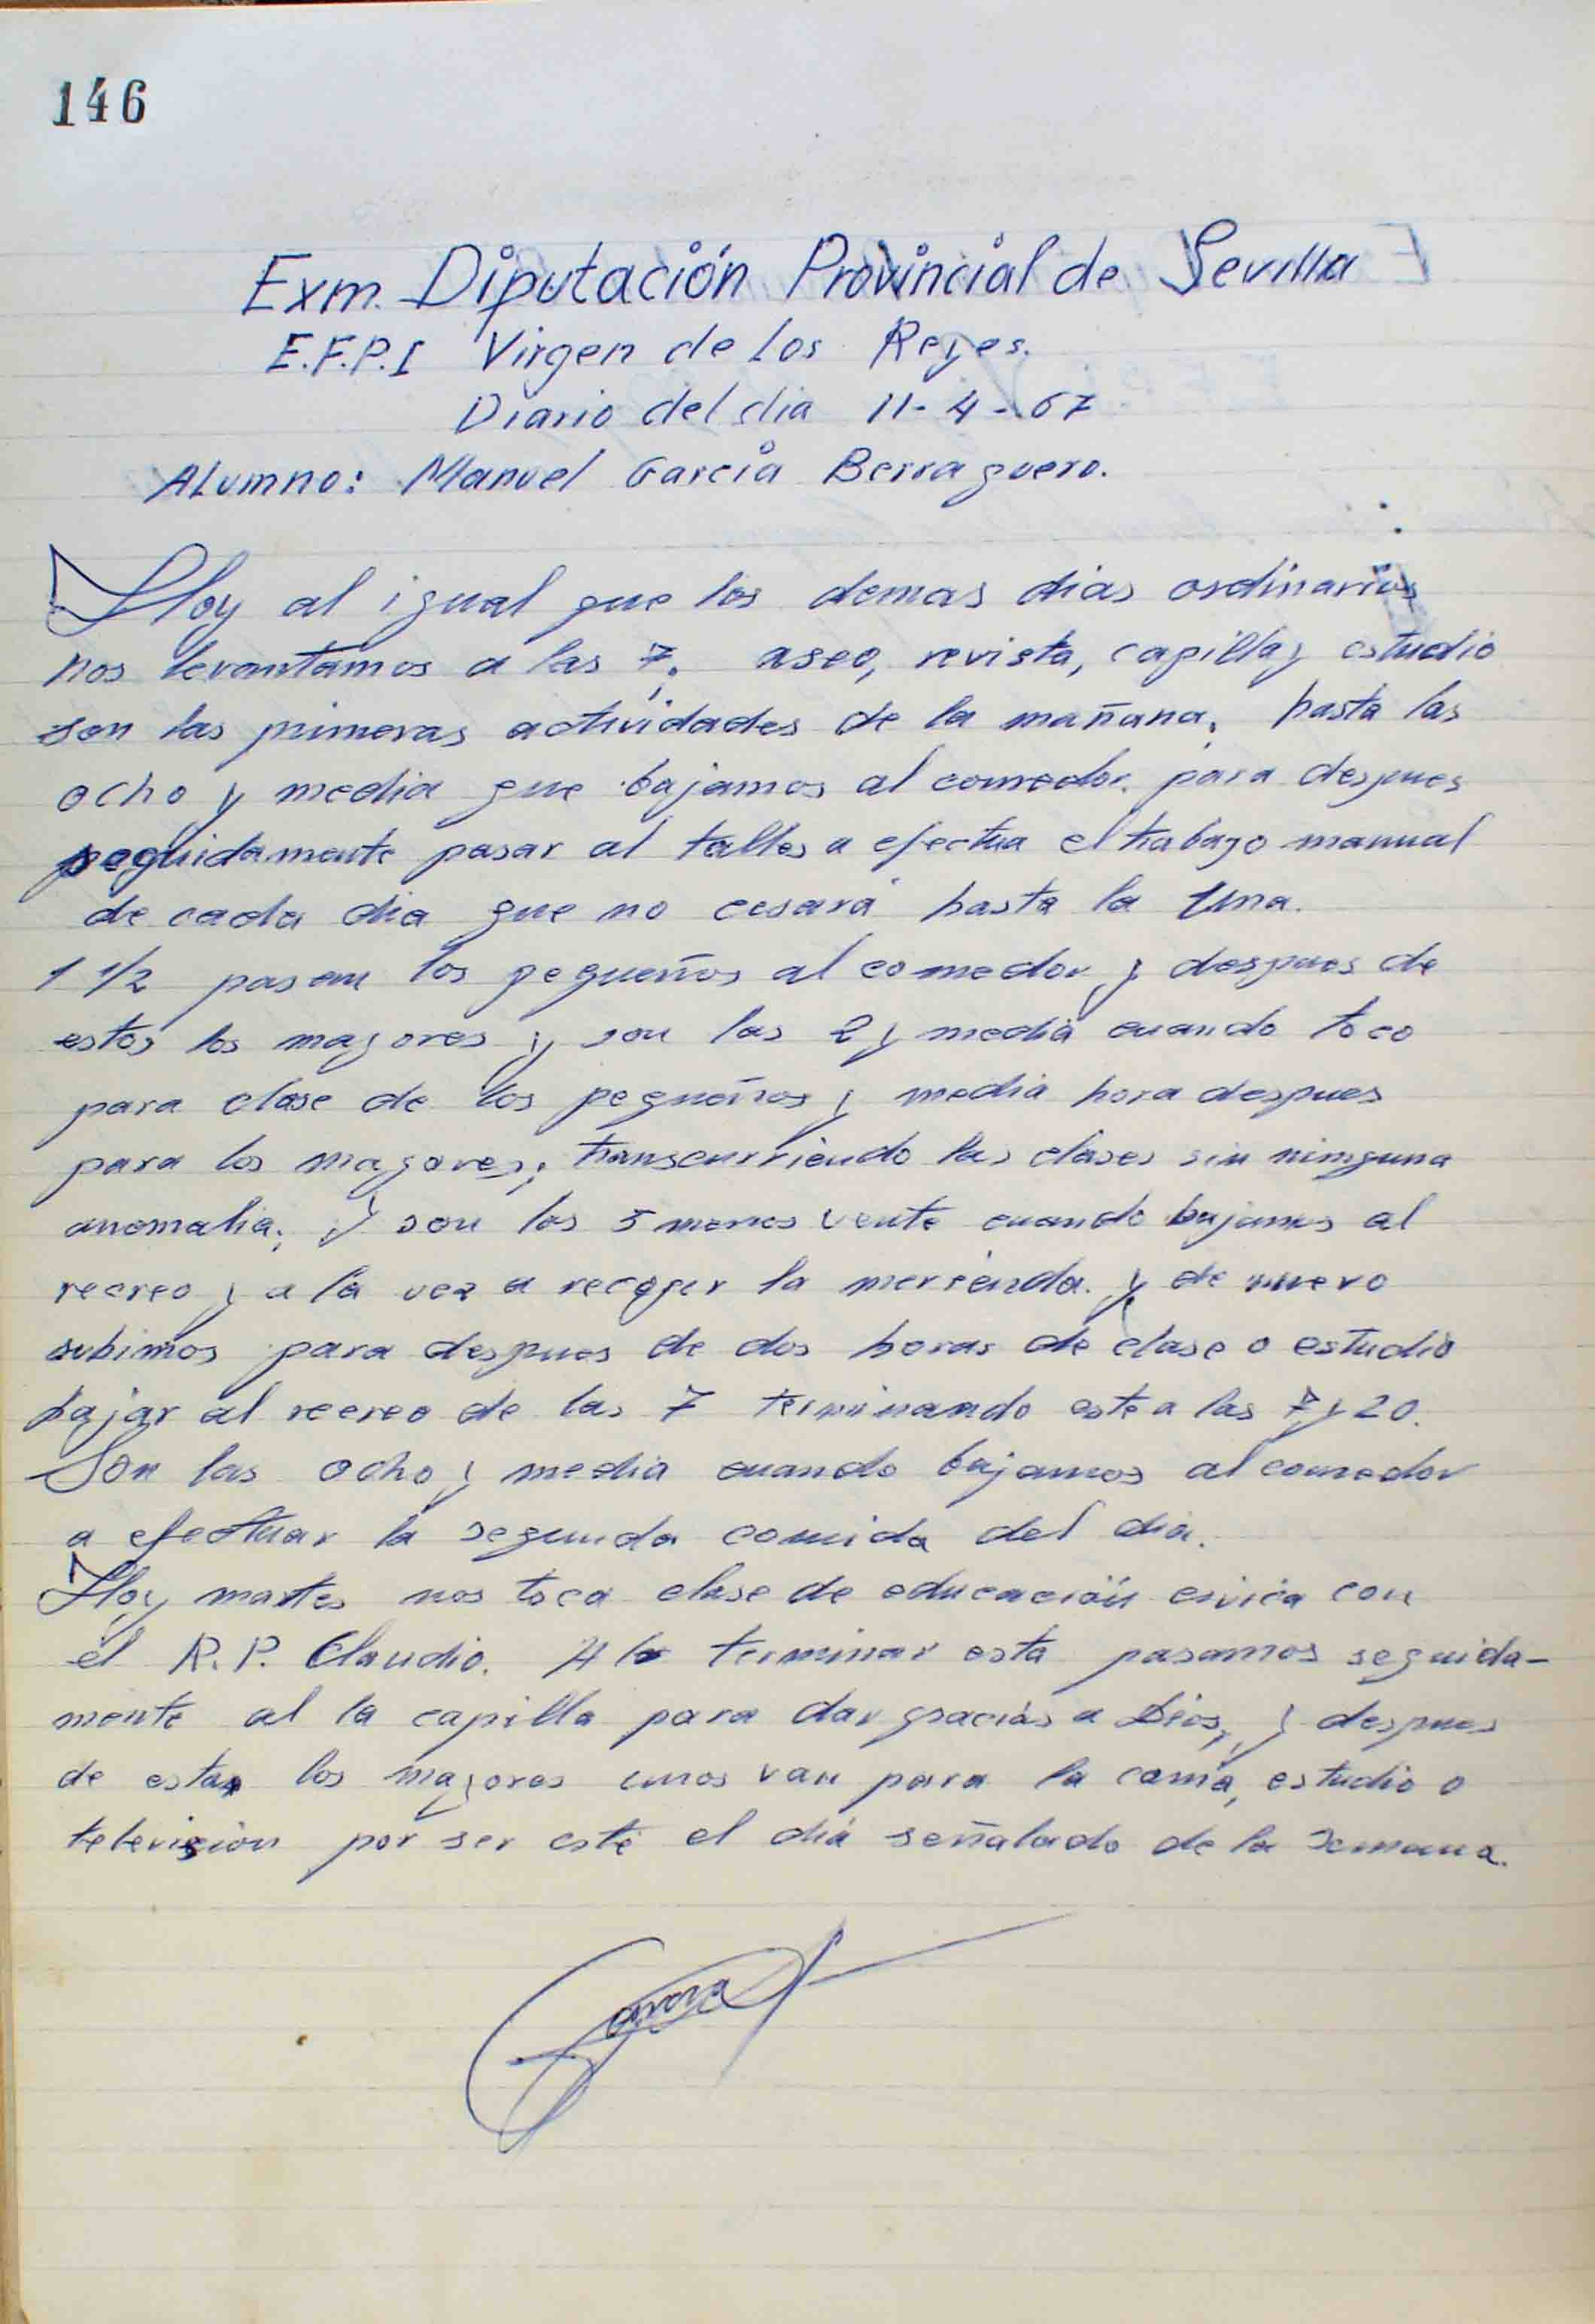 146
Exm. Diputación Provincial de Sevilla
E.F.P.I Virgen de Los Reyes.
Diario del dia 11-4-67
ALumno: Manuel García Berraquero.
Hoy al igual que los demas dias ordinarios
nos levantamos a las 7; aseo, revista, capilla y estudio
son las primeras actividades de la mañana, hasta las
ocho y media que bajamos al comedor. para despues
seguidamente pasar al taller a efectua el trabajo manual
de cada dia que no cesará hasta la Una.
1 1/2 pasan los pequeños al comedor y despues de
estos los mayores y son las 2 y media cuando toco
para clase de los pequeños y media hora despues
para los mayores; transcurriendo las clases sin ninguna
anomalia; y son las 5 menos vente cuando bajamos al
recreo y a la vez a recoger la merienda. y de nuevo
subimos para despues de dos horas de clase o estudio
bajar al recreo de las 7 terminando este a las 7 y 20.
Son las ocho y media cuando bajamos al comedor
a efectuar la segunda comida del dia.
Hoy martes nos toca clase de educación civica con
el R.P. Claudio. Al terminar esta pasamos seguida-
mente al la capilla para dar gracias a Dios, y despues
de esta los mayores unos van para la cama, estudio o
television por ser este el dia señalado de la semana.